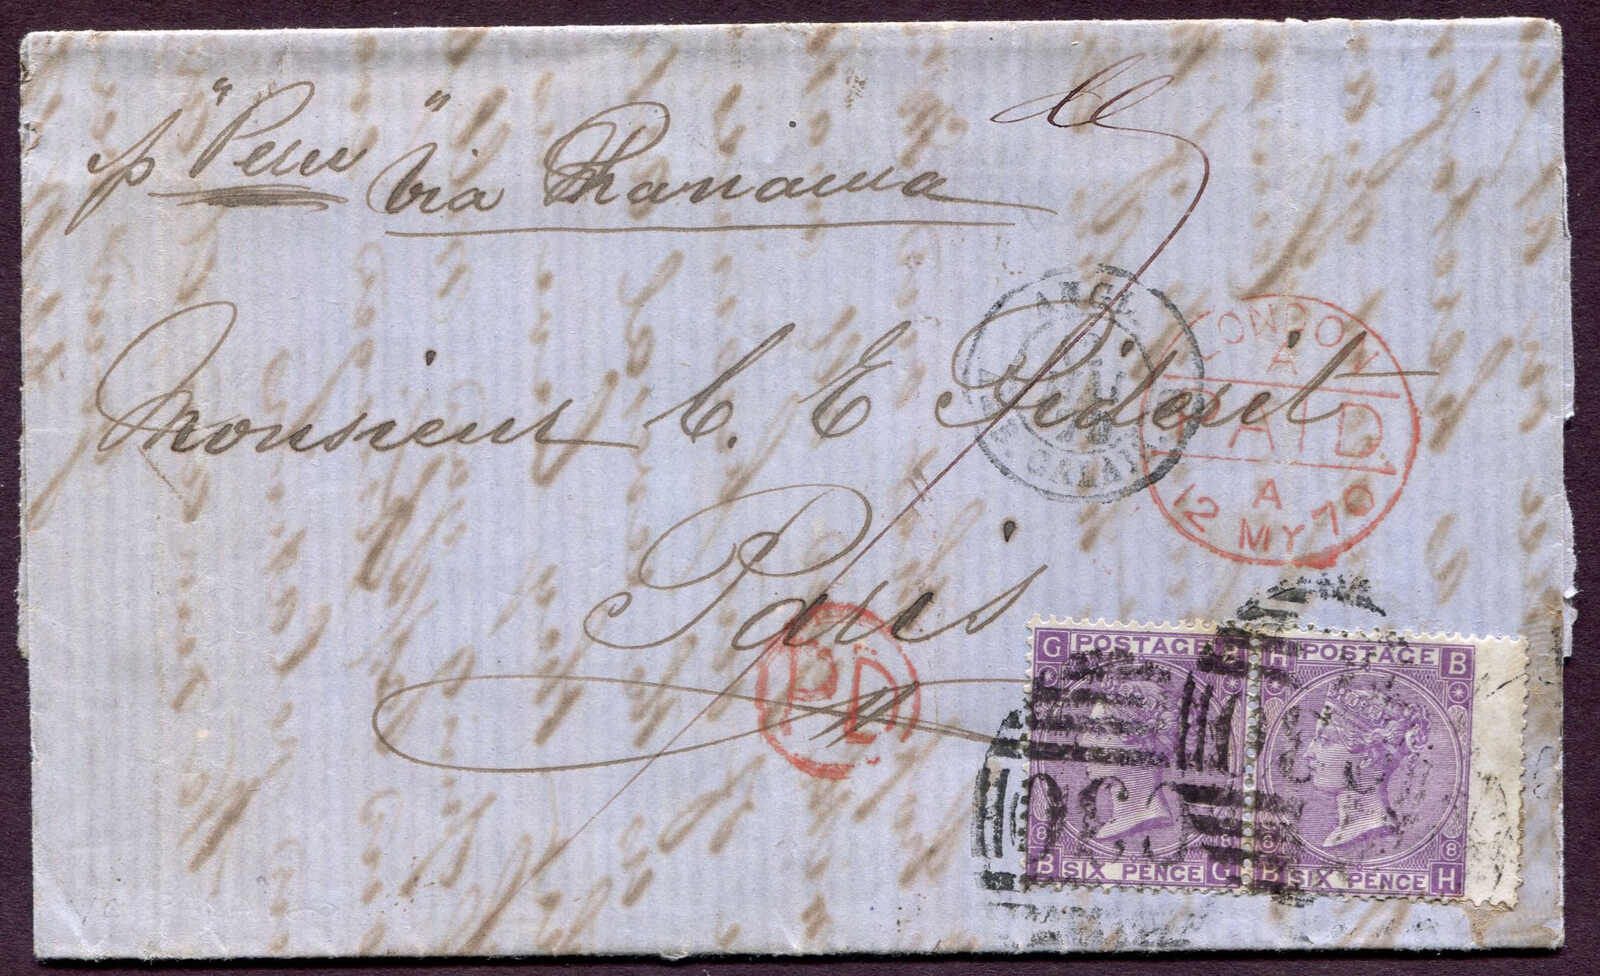 p "Peru" via Panama
Monsieur C. E. Pidoux
Paris
ANGL.
CALAIS
LONDON
A
PAID
A
12 MY 70
PD
G POSTAGE B
8 8
B SIX PENCE G
H POSTAGE B
8 8
B SIX PENCE H